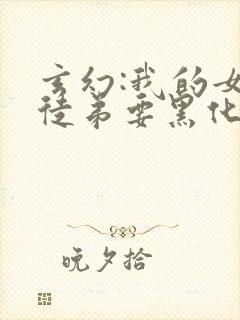 玄幻:我的女
徒弟要黑化
晚夕拾